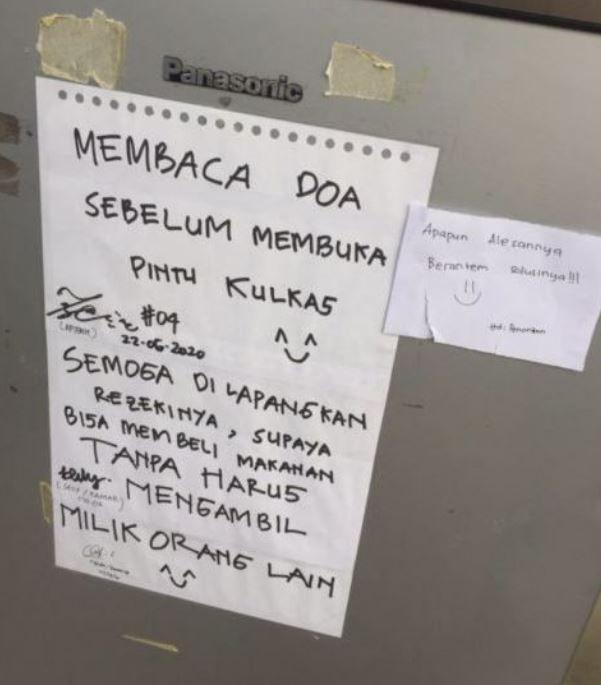 Panasonic
MEMBACA DOA
SEBELUM MEMBUKA
PINTU KULKAS
#04
22-06-2020
SEMOGA DI LAPANGKAN
REZEKINYA, SUPAYA
BISA MEMBELI MAKANAN
TANPA HARUS
MENGAMBIL
MILIK ORANG LAIN
Apapun Alesannya
Berantem solusinya!!!